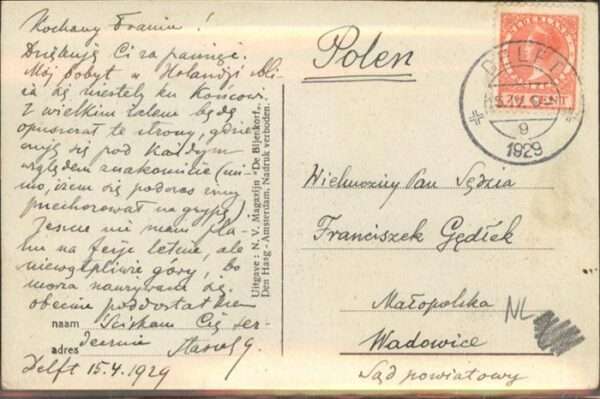 Kochany Franiu!
Dziękuję Ci za pamięć.
Mój pobyt w Holandji zbli-
ża się niestety ku końcowi.
Z wielkim żalem będę
opuszczał te strony, gdzie
czuję się pod każdym
względem znakomicie (mi-
mo, iżem się podczas zimy
przechorował na grypę)
Jeszcze nie mam pla-
nu na ferje letnie, ale
niewątpliwie góry, bo
morza nauzywam się
obecnie pod dostatkiem
naam Ściskam Cię ser-
adres decznie
Delft 15.4.1929
Uitgave: N. V. Magazijn "De Bijenkorf",
Den Haag - Amsterdam, Nadruk verboden.
Polen
NEDERLAND
CENT
DELFT
1929
Wielmożny Pan Sędzia
Franciszek Gędłek
Małopolska
NL
Wadowice
Sąd powiatowy